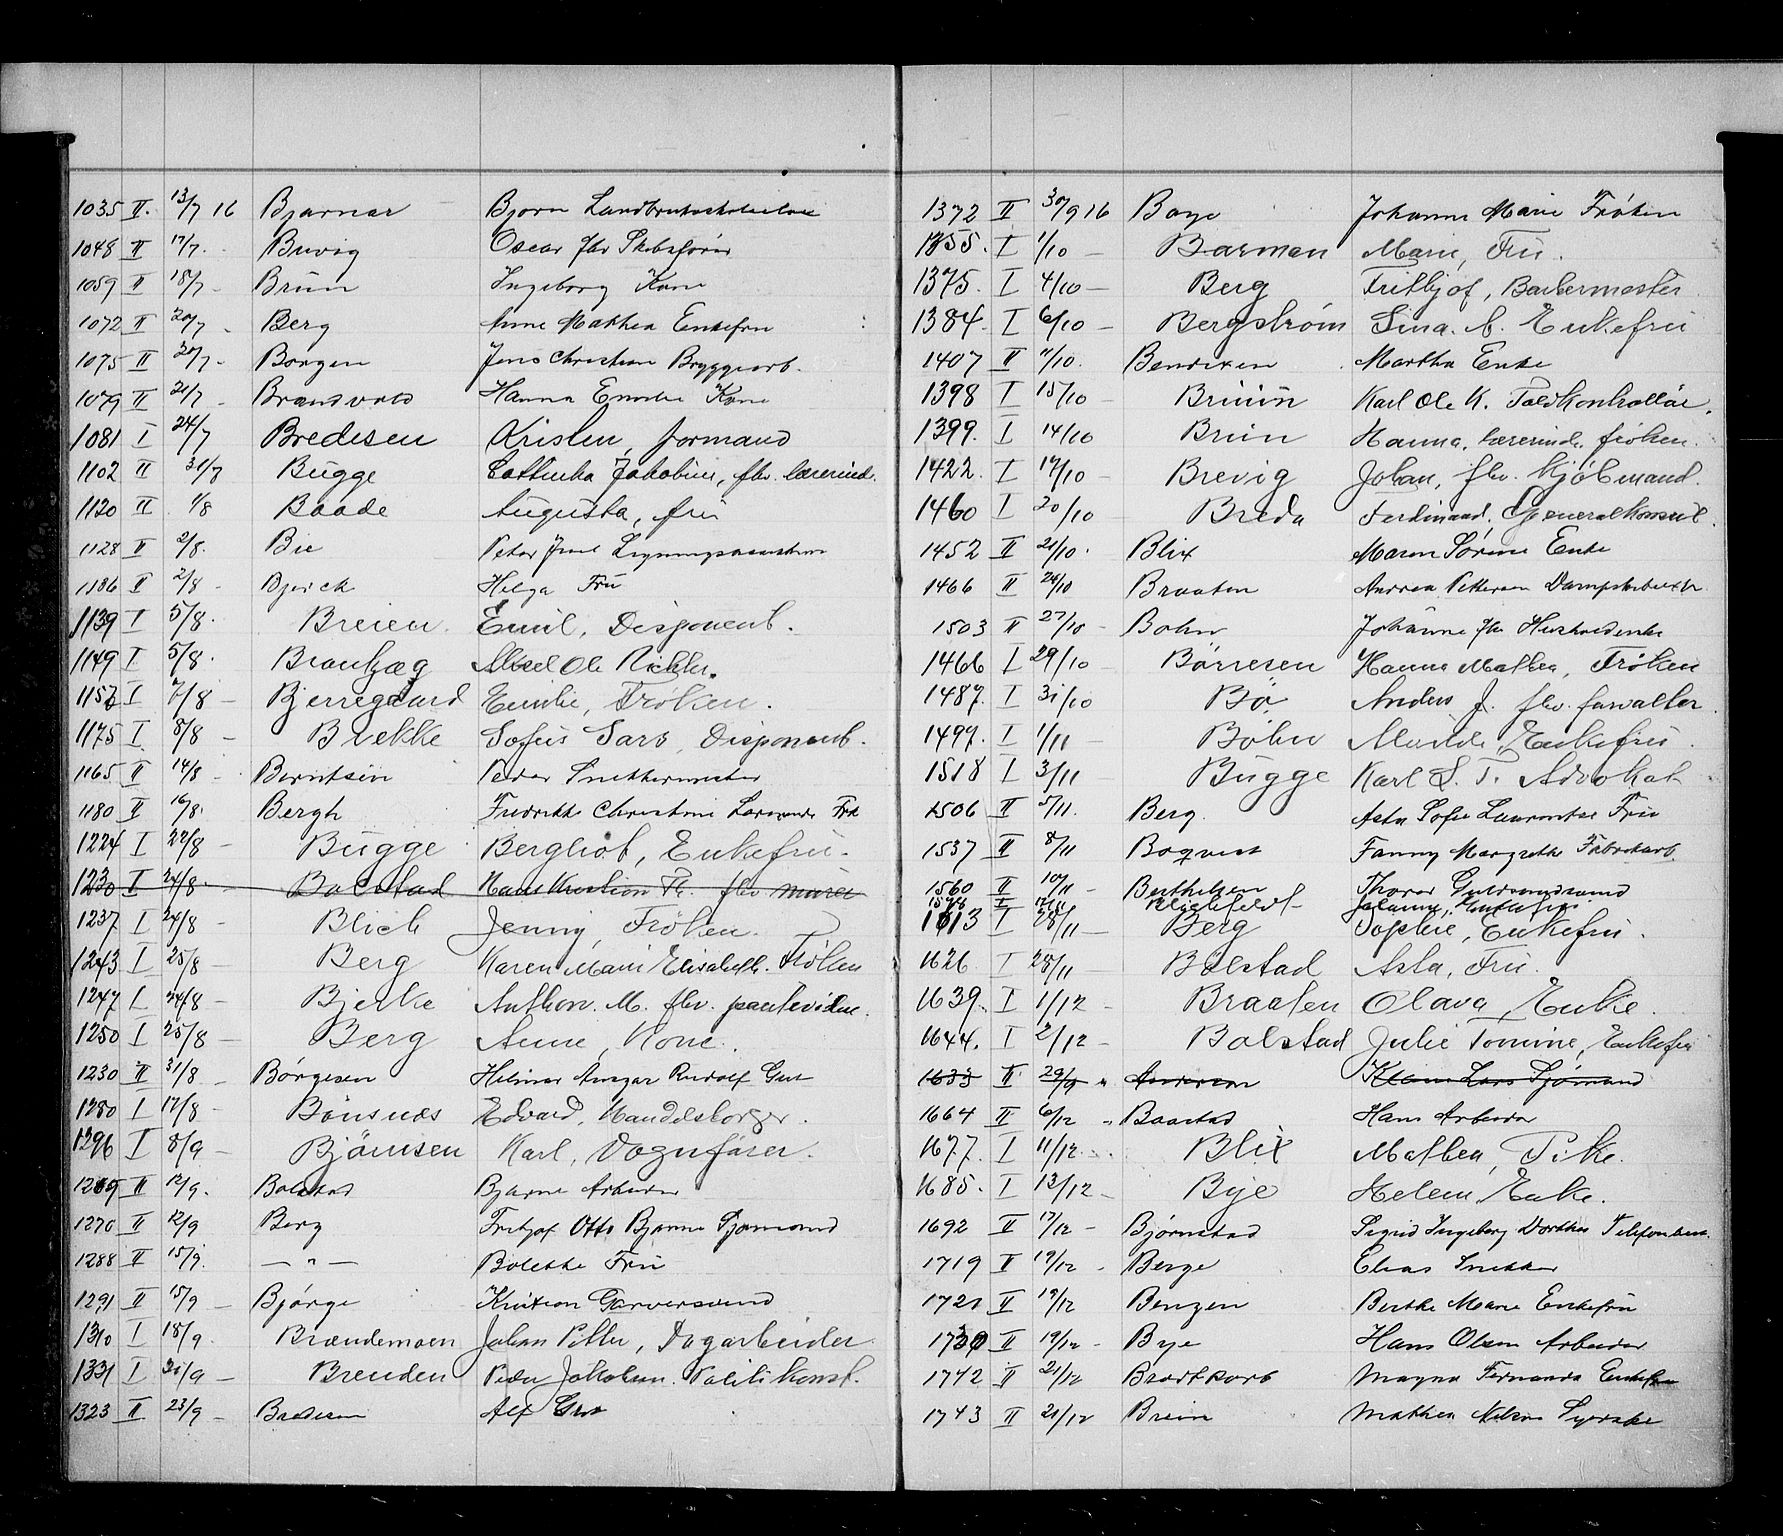 1035 II. 13/7 16 Bjarnar Bjørn
1048 II 17/7. Buvig Oscar fhv Skibsfører
1059 II 18/7 - Brun Ingeborg Kone
1072 II 20/7 - Berg Anne Mathea Enkefru
1075 II 20/7 - Borgen Jens Christian Bryggearb.
1079 II 21/7 - Brandvold Hanna Emilie Kone
1081 I 24/7 Bredesen Kristen, formand
1102 II 31/7 Bugge Cathinka Jakobine, fhv. lærerind.
1120 II 1/8 Baade Augusta, fru
1128 II 2/8. Bie Peter Juul Ligningsassistent
1136 II 2/8 - Bjerck Helga Fru
1139 I 5/8. Breien Emil, Disponent.
1149 I 5/8. Ole
1157 I 7/8 - Bjerregaard Emilie, Frøken.
1175 I 8/8 - Brekke Sofus Sars, Disponent.
1165 II 14/8 - Berntsen Peder Snekkermester
1180 II 16/8. Bergh Fredrikke Christine Frk
1224 I 22/8 - Bugge Bergliot, Enkefru.
1230 I 24/8 - Bolstad Hans Kristian fhv. murer
1237 I 24/8 - Blich Jenny, Frøken.
1243 I 25/8 - Berg Karen Marie Elisabeth. Frøken
1247 I 24/8 - Bjerke Anthon. M. fhv.
1250 I 25/8 - Berg Anne, Kone.
1230 II 31/8 - Børgesen Helmer Ansgar Rudolf Gut
1280 I 17/8 - Bønsnæs Edvard, Handelsborger.
1296 I 8/9 - Bjørnsen Karl, Vognfører.
1269 II 12/9. Bolstad Bjarne Arbeider
1270 II 12/9 Berg Fritjof Otto Bjarne Sjømand
1288 II 15/9. — " — Bolette Fru
1291 II 15/9 - Bjørge Kristian Garversvend
1310 I 18/9. Brændemoen Johan Petter, Dagarbeider
1331 I 21/9 - Brenden Peder Jakobsen. Politikonst.
1323 II 23/9 - Bredesen Alf Gut
1372 II 30/9 16 Boye Johanne Marie Frøken
1355. I 1/10 - Barman Marie, Fru.
1375. I 4/10 - Berg Frithjof, Barbermester
1384. I 6/10 - Bergstrøm Lina. C. Enkefru
1407 II 11/10. Bendixen Martha Enke
1398 I 15/10 - Bruun Karl Ole K. Toldkontrollør.
1399. I 14/10 Brun Hanna, lærerinde, frøken.
1422. I 17/10 - Brevig Johan, fhv. Kjøbmand.
1460 I 20/10 - Breda Ferdinand, Generalkonsul.
1452 II 21/10. Blix Maren Sørine Enke
1466 II 24/10 Braaten Andrea Pettersen
1503 II 27/10 - Bohn Johanne fhv Husholderske
1466 I 29/10 - Børresen Hanna Mathea, Frøken
1487. I 31/10 Bø Anders J. fhv. forvalter
1499. I 1/11 - Bøhn Enkefru.
1518 I 3/11 - Bugge Karl L. T. Advokat
1506 II 5/11. Berg Asta Sofie Laurentse Fru
1537 II 8/11 Boqvist Fanny Margrethe Fabrikarb.
1560 II 10/11 - Berthelsen Thorvor Guldsmedsvend
1578 I 17/11 Blichfeldt Johanne, Enkefru
1613 I 28/11 - Berg Sophie, Enkefru.
1626 I 28/11 - Bolstad Asta, Fru.
1639. I 1/12 - Braaten Olava, Enke.
1644. I 2/12 - Bolstad Julie Tomine, Enkefru
1633 II 29/9 " Andersen Lars Sjømand
1664 II 6/12 " Baastad Hans Arbeider
1677. I 11/12. Blix Mathea, Pike.
1685. I 13/12 - Bye Helene, Enke.
1692 II 17/12 - Bjørnstad Sigrid Ingeborg Dorthea
1719 II 19/12 - Berge Elias Snekker
1721 II 19/12 Benzen Berthe Marie Enkefru
1730 II 19/12 - Bye Hans Olsen Arbeider
1742 II 21/12 Bradtkorb Magna Fernanda Enkefru
1743 II 21/12 Brein Mathea Nelsine Syerske